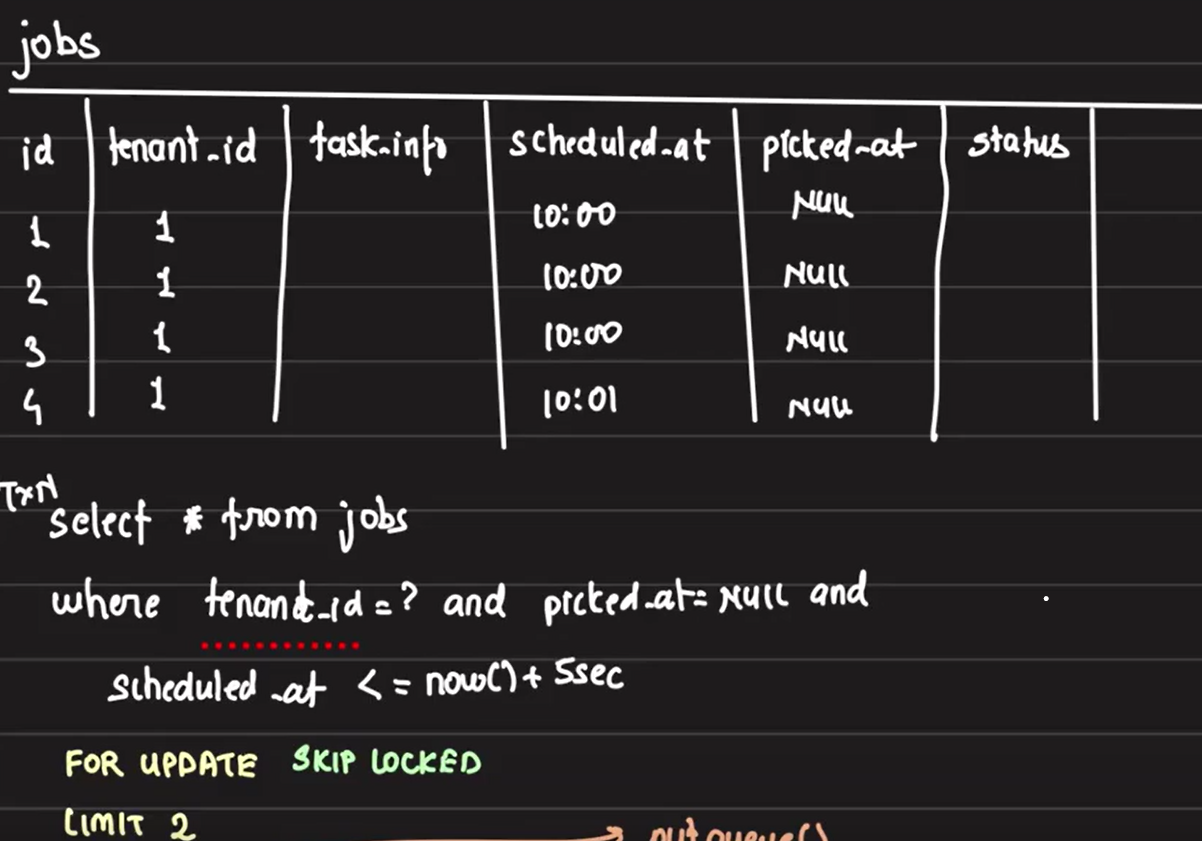 jobs
id tenant_id task_info scheduled_at picked_at status
1 1 10:00 NULL
2 1 10:00 NULL
3 1 10:00 NULL
4 1 10:01 NULL
TXN
select * from jobs
where tenant_id = ? and picked_at = NULL and
scheduled_at <= now() + 5sec
FOR UPDATE SKIP LOCKED
LIMIT 2
put queue()